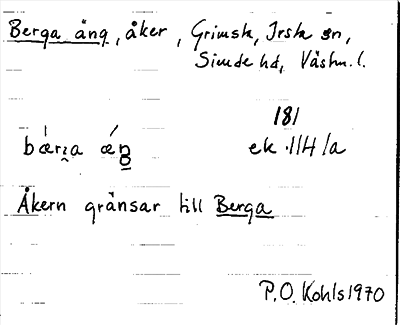 Berga äng, åker, Grimsta, Irsta sn,
Siende hd, Västm. l.
181
bǽrɪ̯a ǽŋ ek. 114/a
Åkern gränsar till Berga
P.O. Kohls 1970